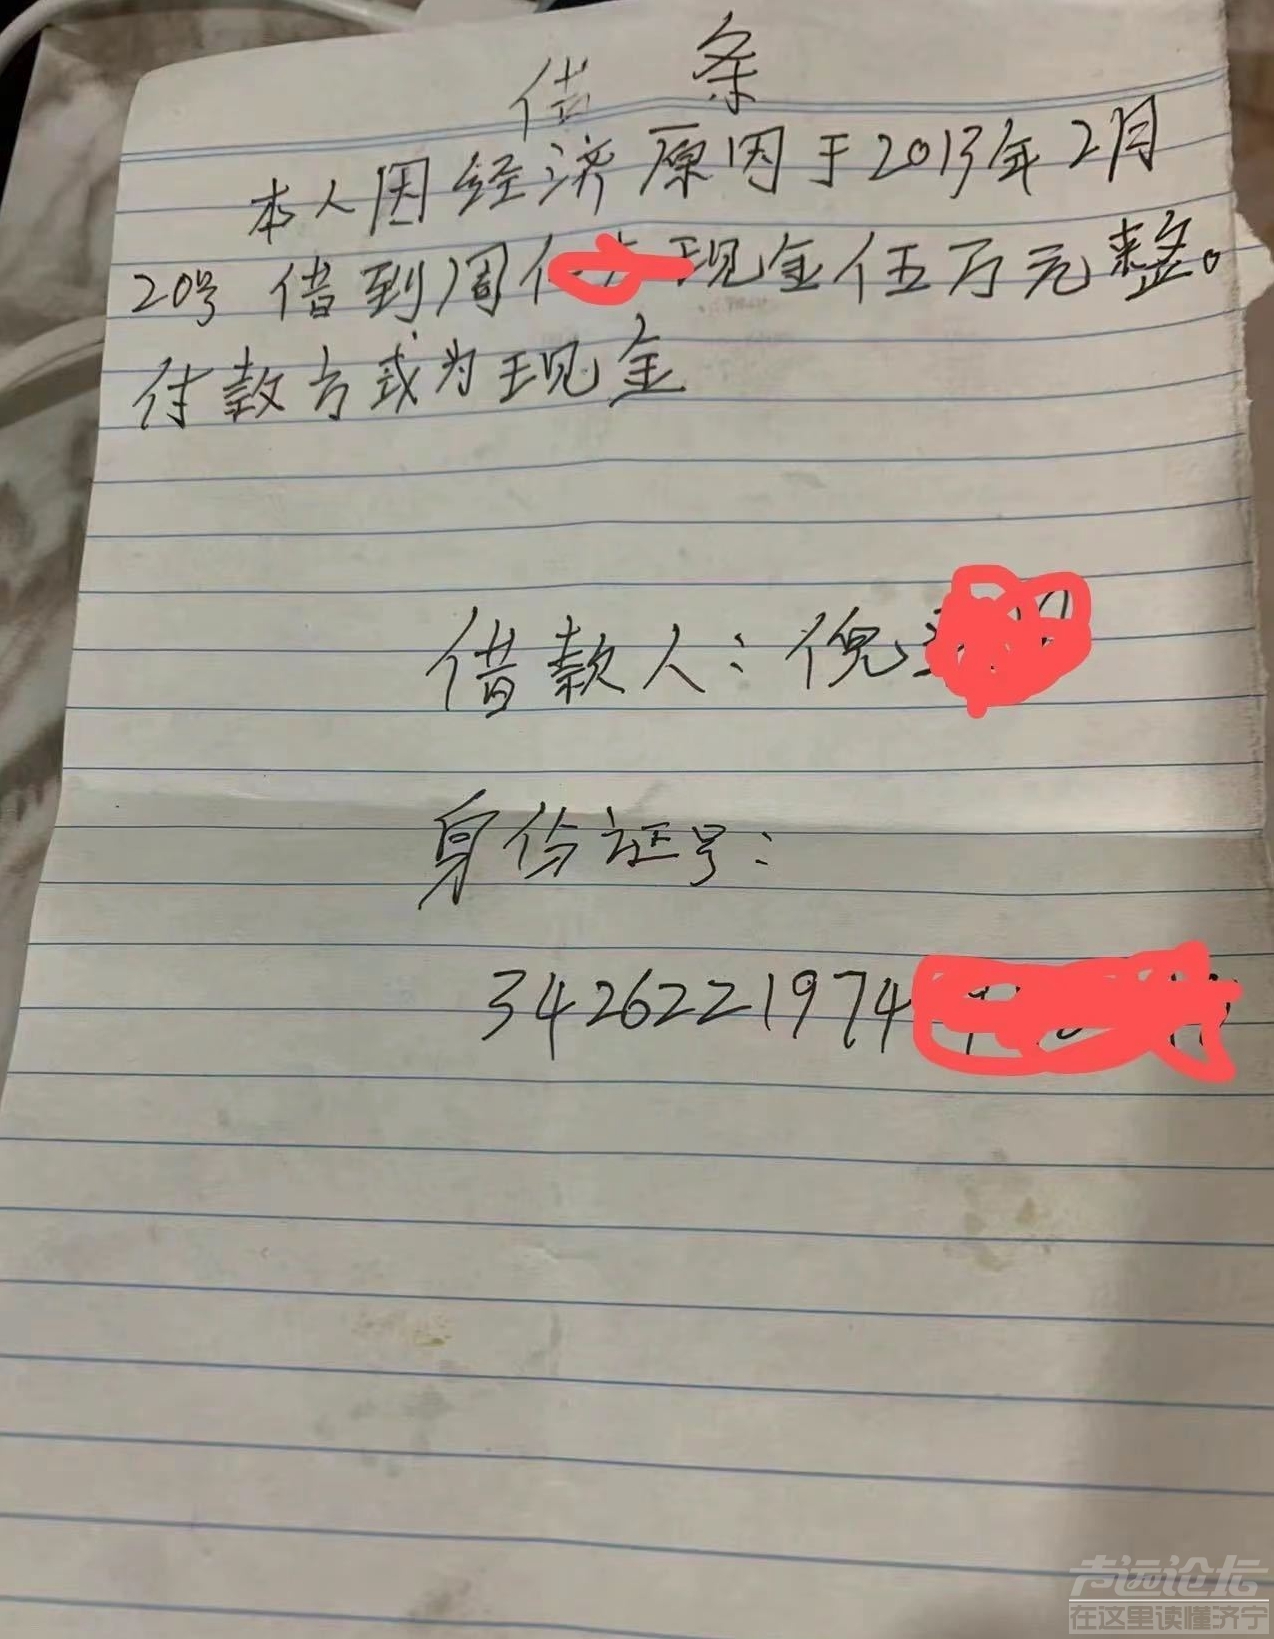 借条
本人因经济原因于2013年2月
20号 借到周 现金伍万元整。
付款方式为现金
借款人：倪
身份证号：
3426221974
声远论坛
在这里读懂济宁